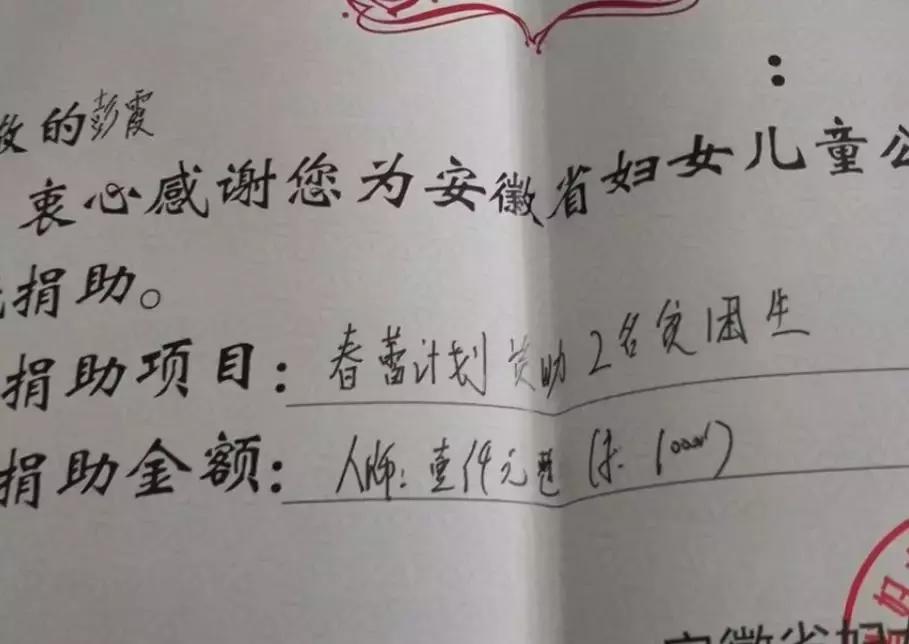 ：
敬的彭霞
衷心感谢您为安徽省妇女儿童公
捐助。
捐助项目：春蕾计划资助2名贫困生
捐助金额：人民币：壹仟元整（¥：1000）
安徽省妇
妇